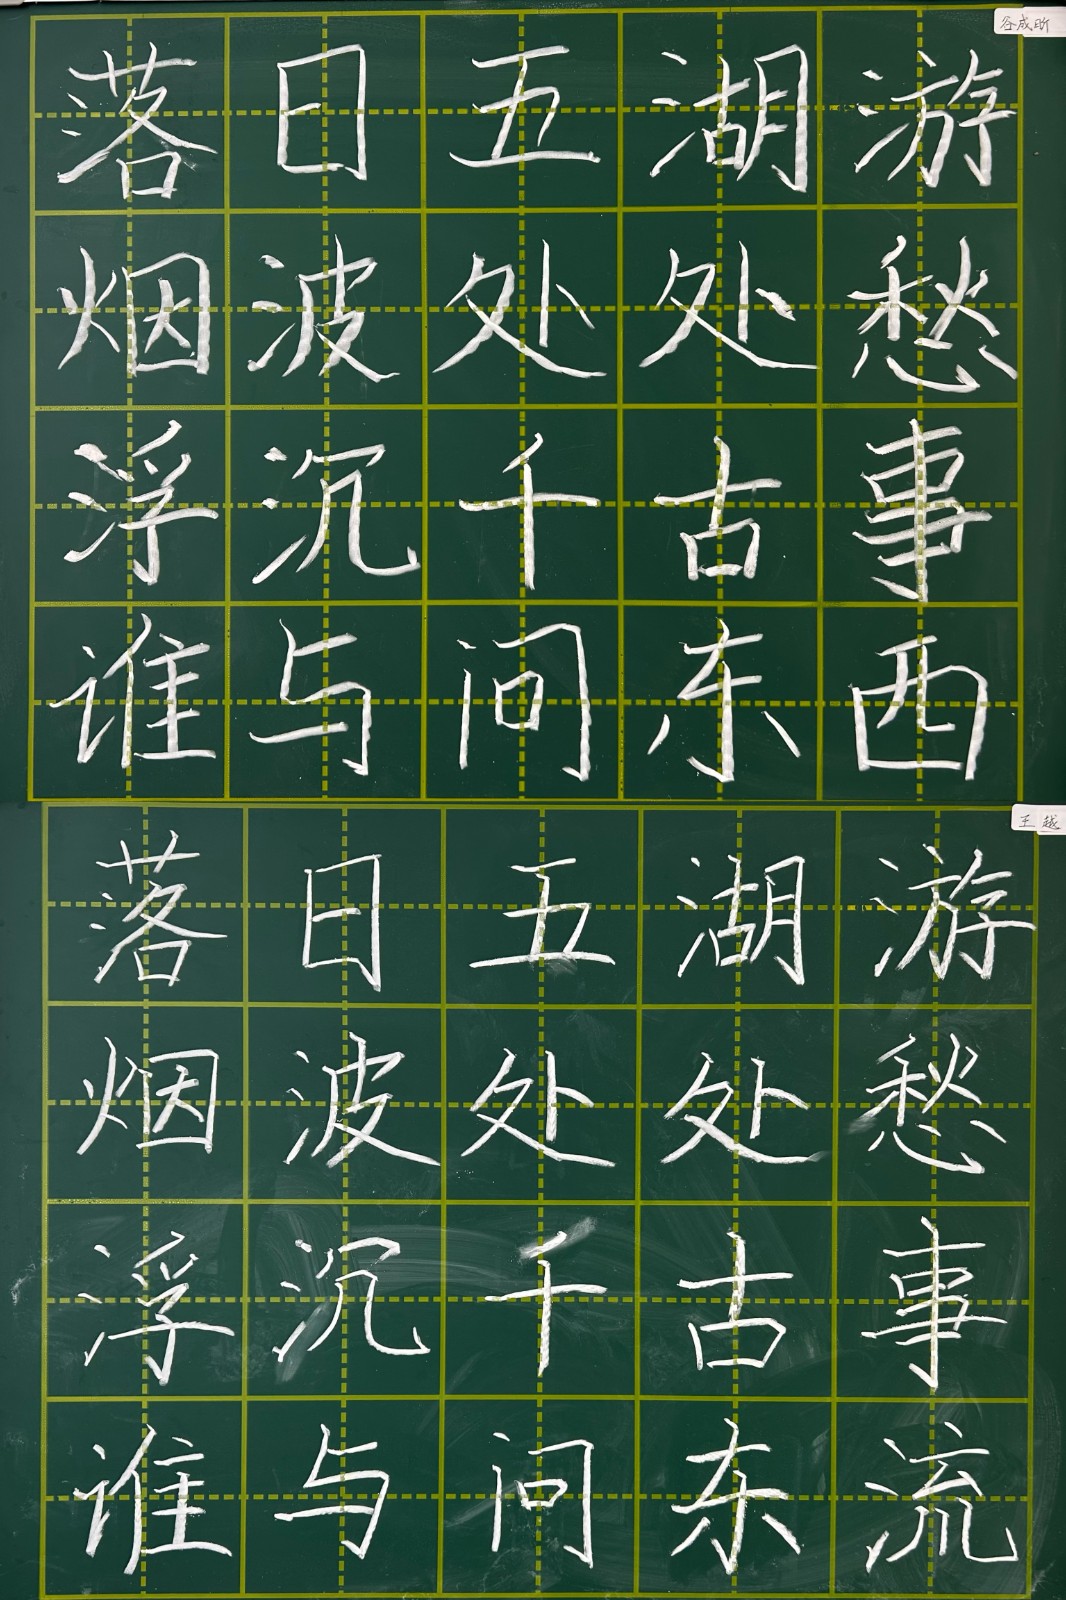 谷成昕
落日五湖游
烟波处处愁
浮沉千古事
谁与问东西
王越
落日五湖游
烟波处处愁
浮沉千古事
谁与问东流